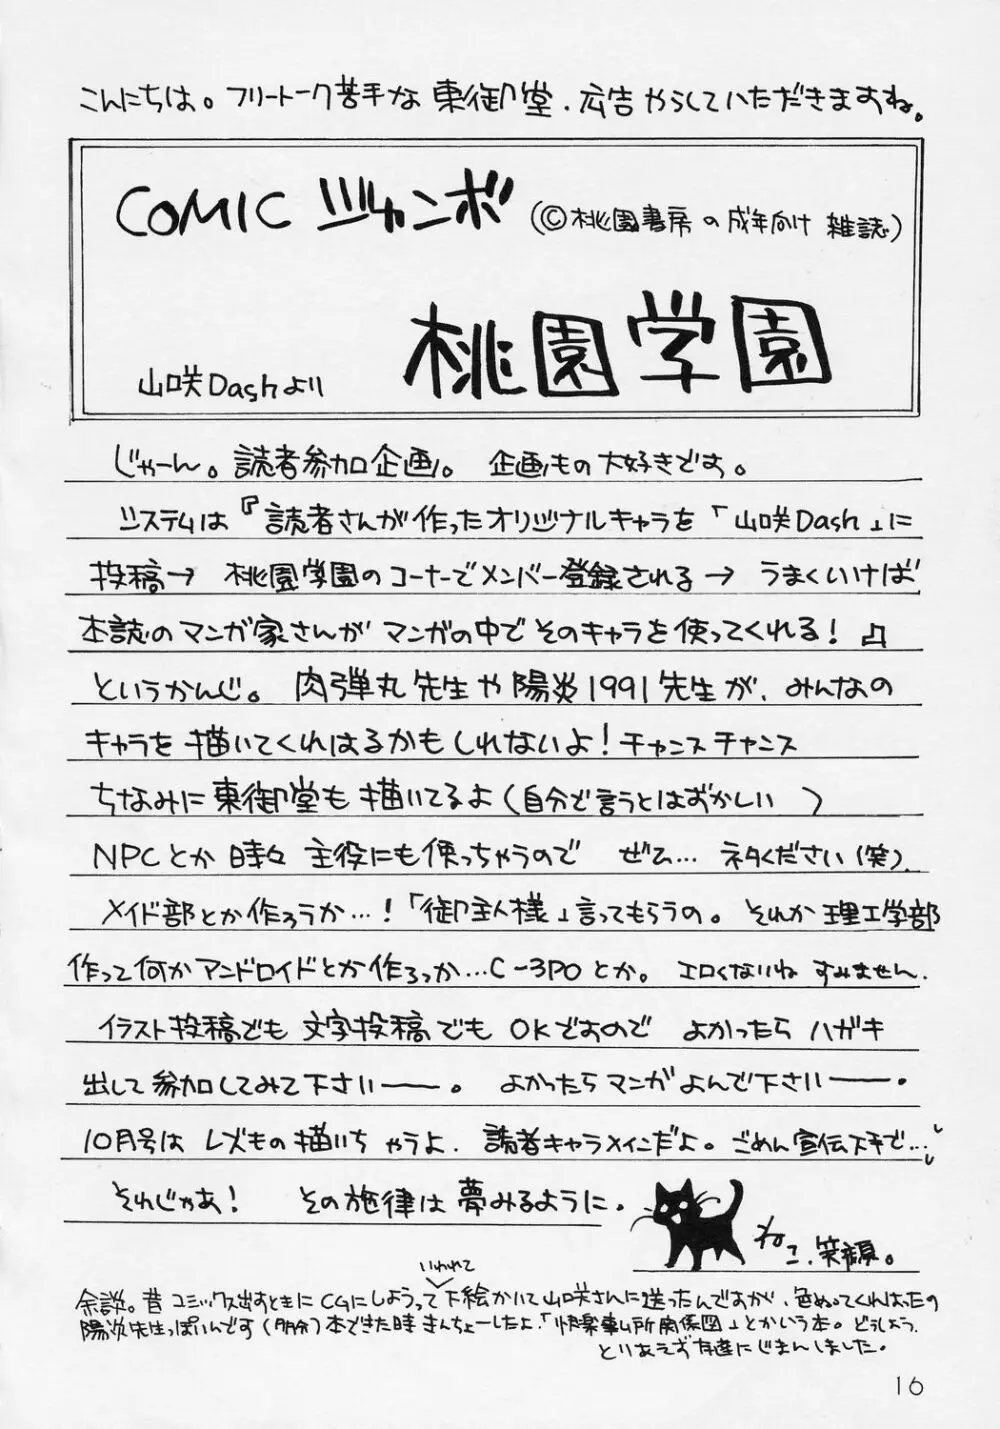 こんにちは。フリートーク苦手な東御堂、広告やらしていただきますね。
COMIC ジャンボ (©桃園書房の成年向け雑誌)
桃園学園
山咲Dashより
じゃーん。読者参加企画。企画もの大好きです。
システムは『読者さんが作ったオリジナルキャラを「山咲Dash」に
投稿→桃園学園のコーナーでメンバー登録される→うまくいけば
本誌のマンガ家さんがマンガの中でそのキャラを使ってくれる!』
というかんじ。肉弾丸先生や陽炎1991先生が、みんなの
キャラを描いてくれはるかもしれないよ!チャンスチャンス
ちなみに東御堂も描いてるよ(自分で言うとはずかしい )
NPCとか時々主役にも使っちゃうので ぜひ…ネタください(笑).
メイド部とか作ろうか…!「御主人様」言ってもらうの。それか理工学部
作って何かアンドロイドとか作ろっか…C-3POとか。エロくないね すみません.
イラスト投稿でも文字投稿でもOKですので よかったらハガキ
出して参加してみて下さい――。よかったらマンガよんで下さい――.
10月号はレズもの描いちゃうよ.読者キャラメインだよ。ごめん宣伝下手で…
それじゃあ! その旋律は夢みるように.
ねこ.笑顔。
余談。昔コミックス出すときにCGにしようっていわれて下絵かいて山咲さんに送ったんですが、色ぬってくれはったの
陽炎先生っぽいんです(多分)本できた時きんちょーしたよ、「快楽事ム所関係図」とかいう本。どうしよう.
とりあえず友達にじまんしました。
16